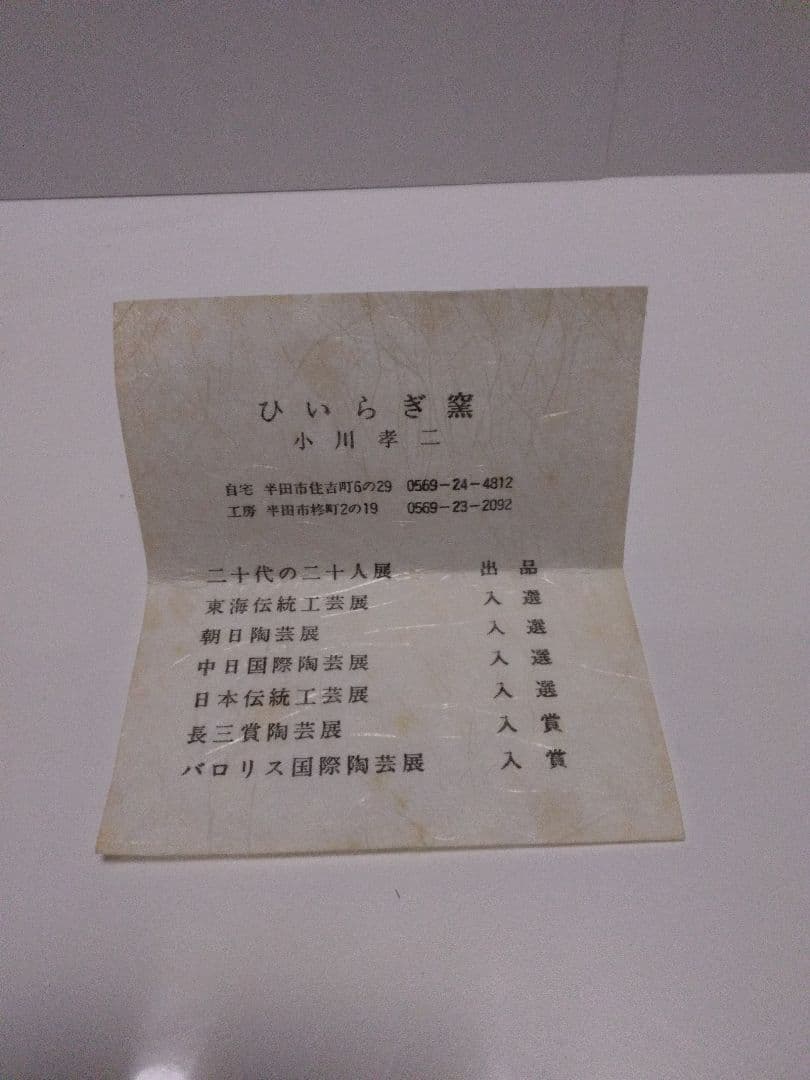 ひいらぎ窯
小川孝二
自宅 半田市住吉町6の29 0569-24-4812
工房 半田市柊町2の19 0569-23-2092
二十代の二十人展 出品
東海伝統工芸展 入選
朝日陶芸展 入選
中日国際陶芸展 入選
日本伝統工芸展 入選
長三賞陶芸展 入賞
バロリス国際陶芸展 入賞